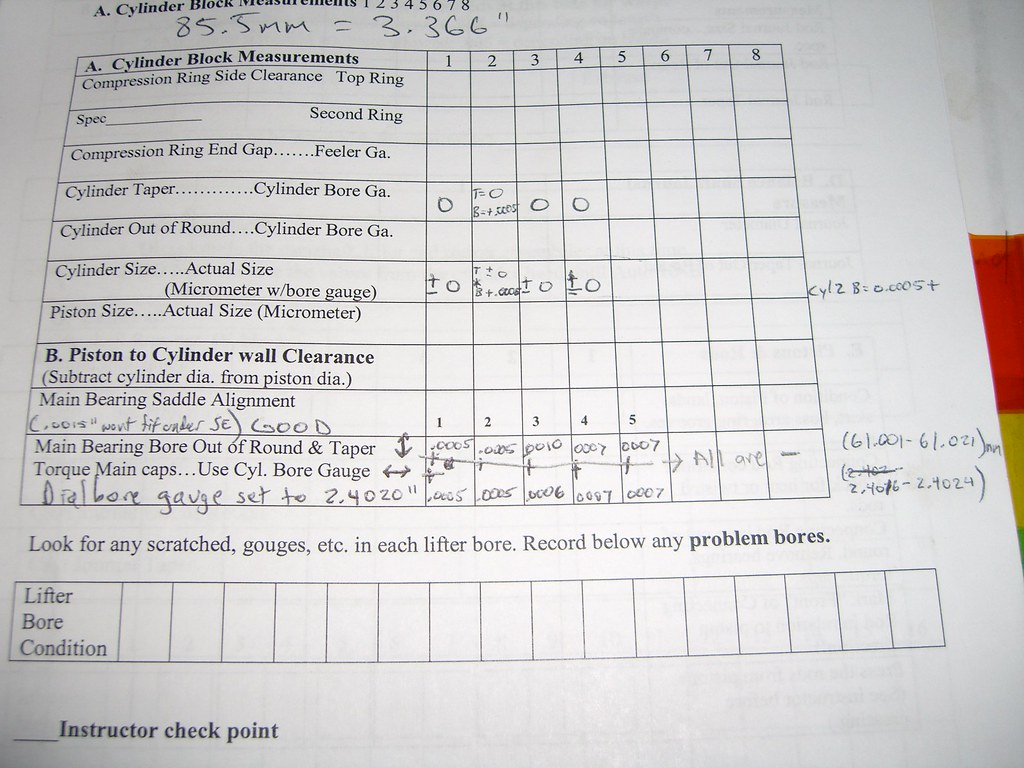 A. Cylinder Block Measurements 1 2 3 4 5 6 7 8
85.5mm = 3.366"
A. Cylinder Block Measurements 1 2 3 4 5 6 7 8
Compression Ring Side Clearance Top Ring
Spec__________ Second Ring
Compression Ring End Gap.......Feeler Ga.
Cylinder Taper.............Cylinder Bore Ga. 0 T=0 B=+.0005 0 0
Cylinder Out of Round....Cylinder Bore Ga.
Cylinder Size.....Actual Size
(Micrometer w/bore gauge) ±0 T±0 B+.0005 ±0 ±0 Cyl 2 B=0.0005+
Piston Size.....Actual Size (Micrometer)
B. Piston to Cylinder wall Clearance
(Subtract cylinder dia. from piston dia.)
Main Bearing Saddle Alignment
(.0015" wont fit under SE) GOOD 1 2 3 4 5
Main Bearing Bore Out of Round & Taper ↕ .0005 .0005 .0010 .0007 .0007 (61.001-61.021)mm
Torque Main caps...Use Cyl. Bore Gauge ↔ → All are −
Dial bore gauge set to 2.4020" .0005 .0005 .0006 .0007 .0007 2.4016-2.4024)
Look for any scratched, gouges, etc. in each lifter bore. Record below any problem bores.
Lifter
Bore
Condition
____Instructor check point